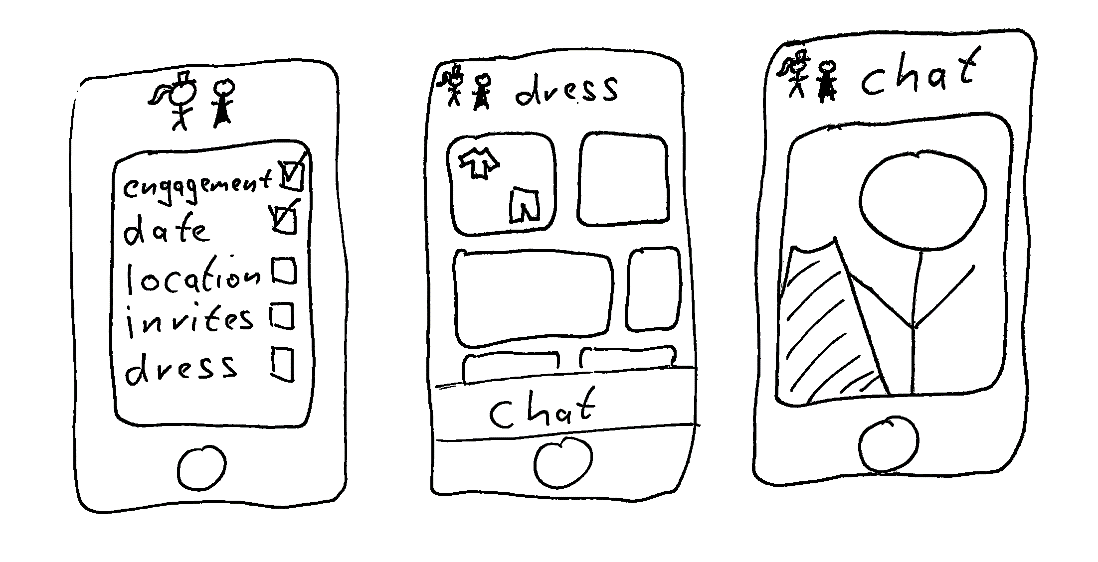 engagement
date
location
invites
dress
dress
chat
chat